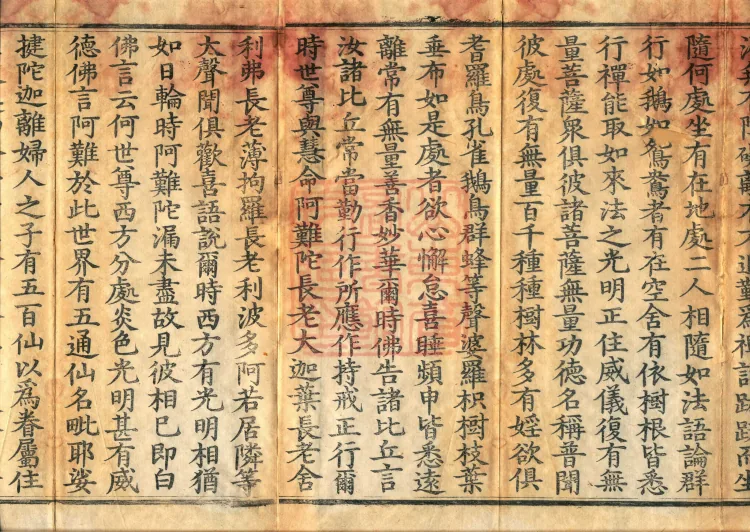 隨何處坐有在地處二人相隨如法語論群
行如鵝如鴛鴦者有在空舍有依樹根皆悉
行禪能取如來法之光明正住威儀復有無
量菩薩衆俱彼諸菩薩無量功德名稱普聞
彼處復有無量百千種種樹林多有婬欲俱
耆羅鳥孔雀鵝鳥群蜂等聲婆羅枳樹枝葉
垂布如是處者欲心懈怠喜睡頻申皆悉遠
離常有無量善香妙華爾時佛告諸比丘言
汝諸比丘常當勤行作所應作持戒正行爾
時世尊與慧命阿難陀長老大迦葉長老舍
利弗長老薄拘羅長老利波多阿若居隣等
大聲聞俱歡喜語說爾時西方有光明相猶
如日輪時阿難陀漏未盡故見彼相已即白
佛言云何世尊西方分處炎色光明甚有威
德佛言阿難於此世界有五通仙名毗耶娑
揵陀迦離婦人之子有五百仙以爲眷屬往